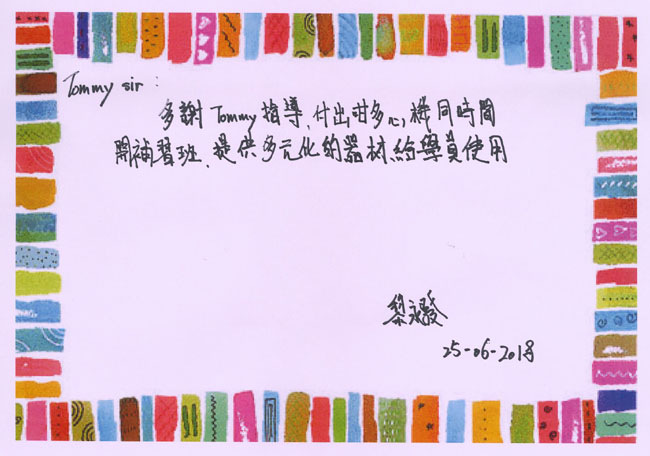 Tommy sir :
多謝 Tommy 指導、付出咁多心機同時間
開補習班、提供多元化的器材給學員使用
黎永發
25-06-2018